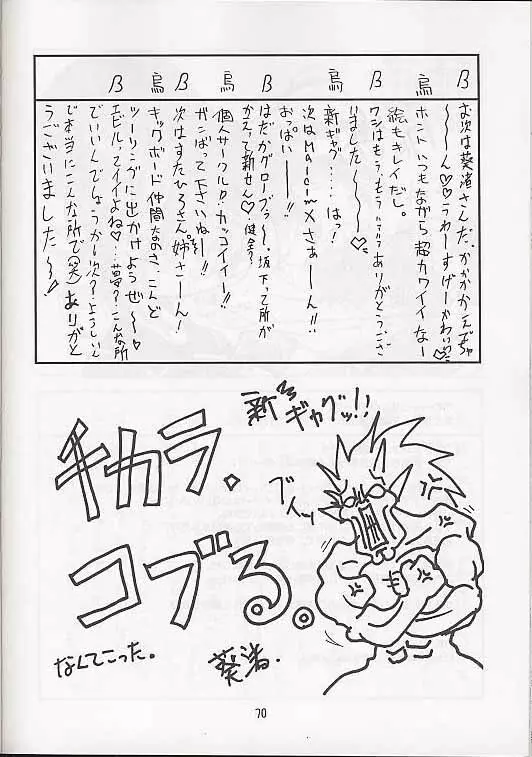 β
お次は葵渚さんだ、かかかかえぢゃ
〜〜〜ん♡♡うわーすげーかわいい♡
烏
ホントいつもながら超カワイイなー
絵もキレイだし。
β
ワシはもう、もう…ありがとうござ
いました〜〜〜♡
烏
新ギャグ……はっ!
次はMalcimXさぁーーん!!
おっぱいーーー!!
β
はだかグローブぅ〜、坂下って所が
かえって新せん♡健全?
烏
個人サークルD・カッコイイー!!
ガンばって下さいねー!!
β
次はすたひろさん、姉さーん!
烏
キックボード仲間なのさ、こんど
ツーリングに出かけようぜ〜〜♡
β
エビルってイイよね♡…夢?こんな所
でいいんでしょうか〜次?ようしいん
で本当にこんな所で(笑)ありがと
うございました〜〜!
新ギャグッ!!
チカラ、
コブる。
ブイッ
キ
なんてこった。
葵渚.
70